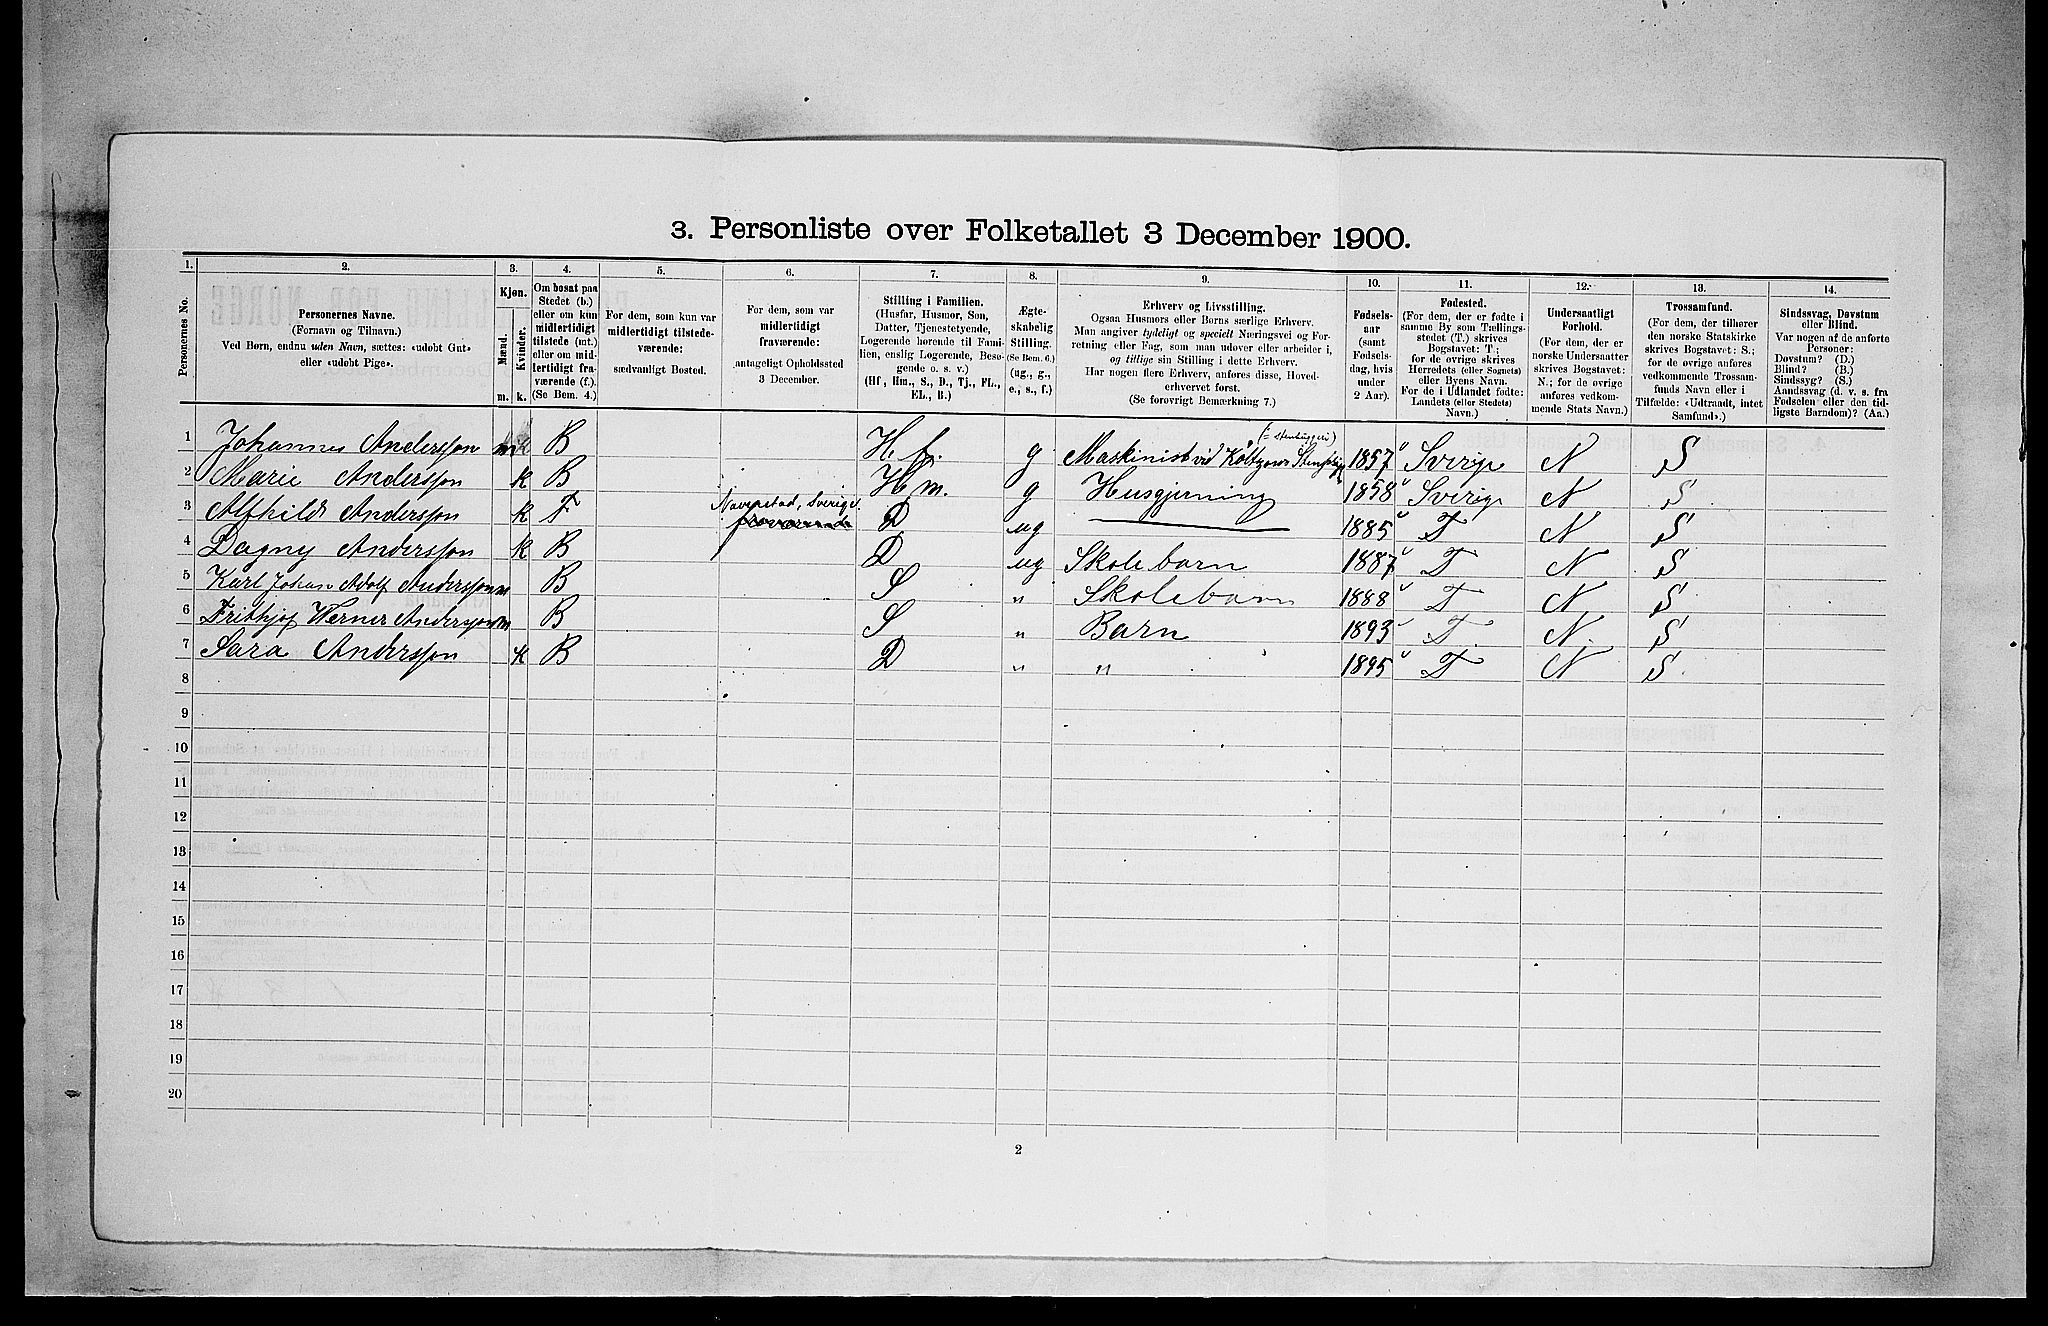 3. Personliste over Folketallet 3 December 1900.
1. 2. 3. 4. 5. 6. 7. 8. 9. 10. 11. 12. 13. 14.
Personernes No.
Personernes Navne.
(Fornavn og Tilnavn.)
Ved Børn, endnu uden Navn, sættes: «udøbt Gut»
eller «udøbt Pige».
Kjøn.
Mænd.
Kvinder.
m. k.
Om bosat paa
Stedet (b.)
eller om kun
midlertidigt
tilstede (mt.)
eller om mid-
lertidigt fra-
værende (f.).
(Se Bem. 4.)
For dem, som kun var
midlertidigt tilstede-
værende:
sædvanligt Bosted.
For dem, som var
midlertidigt
fraværende:
antageligt Opholdssted
3 December.
Stilling i Familien.
(Husfar, Husmor, Søn,
Datter, Tjenestetyende,
Logerende hørende til Fami-
lien, enslig Logerende, Besø-
gende o. s. v.)
(Hf., Hm., S., D., Tj., FL.,
EL., B.)
Ægte-
skabelig
Stilling.
(Se Bem. 6.)
(ug., g.,
e., s., f.)
Erhverv og Livsstilling.
Ogsaa Husmors eller Børns særlige Erhverv.
Man angiver tydeligt og specielt Næringsvei og For-
retning eller Fag, som man udøver eller arbeider i,
og tillige sin Stilling i dette Erhverv.
Har nogen flere Erhverv, anføres disse, Hoved-
erhvervet først.
(Se forøvrigt Bemærkning 7.)
Fødsels-
aar
(samt
Fødsels-
dag, hvis
under
2 Aar).
Fødested.
(For dem, der er fødte i
samme By som Tællings-
stedet (T.) skrives
Bogstavet: T;
for de øvrige skrives
Herredets (eller Sognets)
eller Byens Navn.
For de i Udlandet fødte:
Landets (eller Stedets)
Navn.)
Undersaatligt
Forhold.
(For dem, der er
norske Undersaatter
skrives Bogstavet:
N.; for de øvrige
anføres vedkom-
mende Stats Navn.)
Trossamfund.
(For dem, der tilhører
den norske Statskirke
skrives Bogstavet: S.;
for de øvrige anføres
vedkommende Trossam-
funds Navn eller i
Tilfælde: «Udtraadt, intet
Samfund».)
Sindssvag, Døvstum
eller Blind.
Var nogen af de anførte
Personer:
Døvstum? (D.)
Blind? (B.)
Sindssyg? (S.)
Aandssvag (d. v. s. fra
Fødselen eller den tid-
ligste Barndom)? (Aa.)
1 Johannes Andersson m B Hf. g Maskinist vid 1857 Sverige N S
2 Marie Andersson k B Hm. g Husgjerning 1858 Sverige N S.
3 Alfhild Andersson k F Sverige. D ug 1885 T N S
4 Dagny Andersson k B D ug Skolebarn 1887 T N S
5 Karl Johan Adolf Andersson m B S " Skolebarn 1888 T N S
6 Frithjof Werner Andersson m B S " Barn 1893 T. N. S
7 Sara Andersson k B D " " 1895 T N S.
8
9
10
11
12
13
14
15
16
17
18
19
20
2